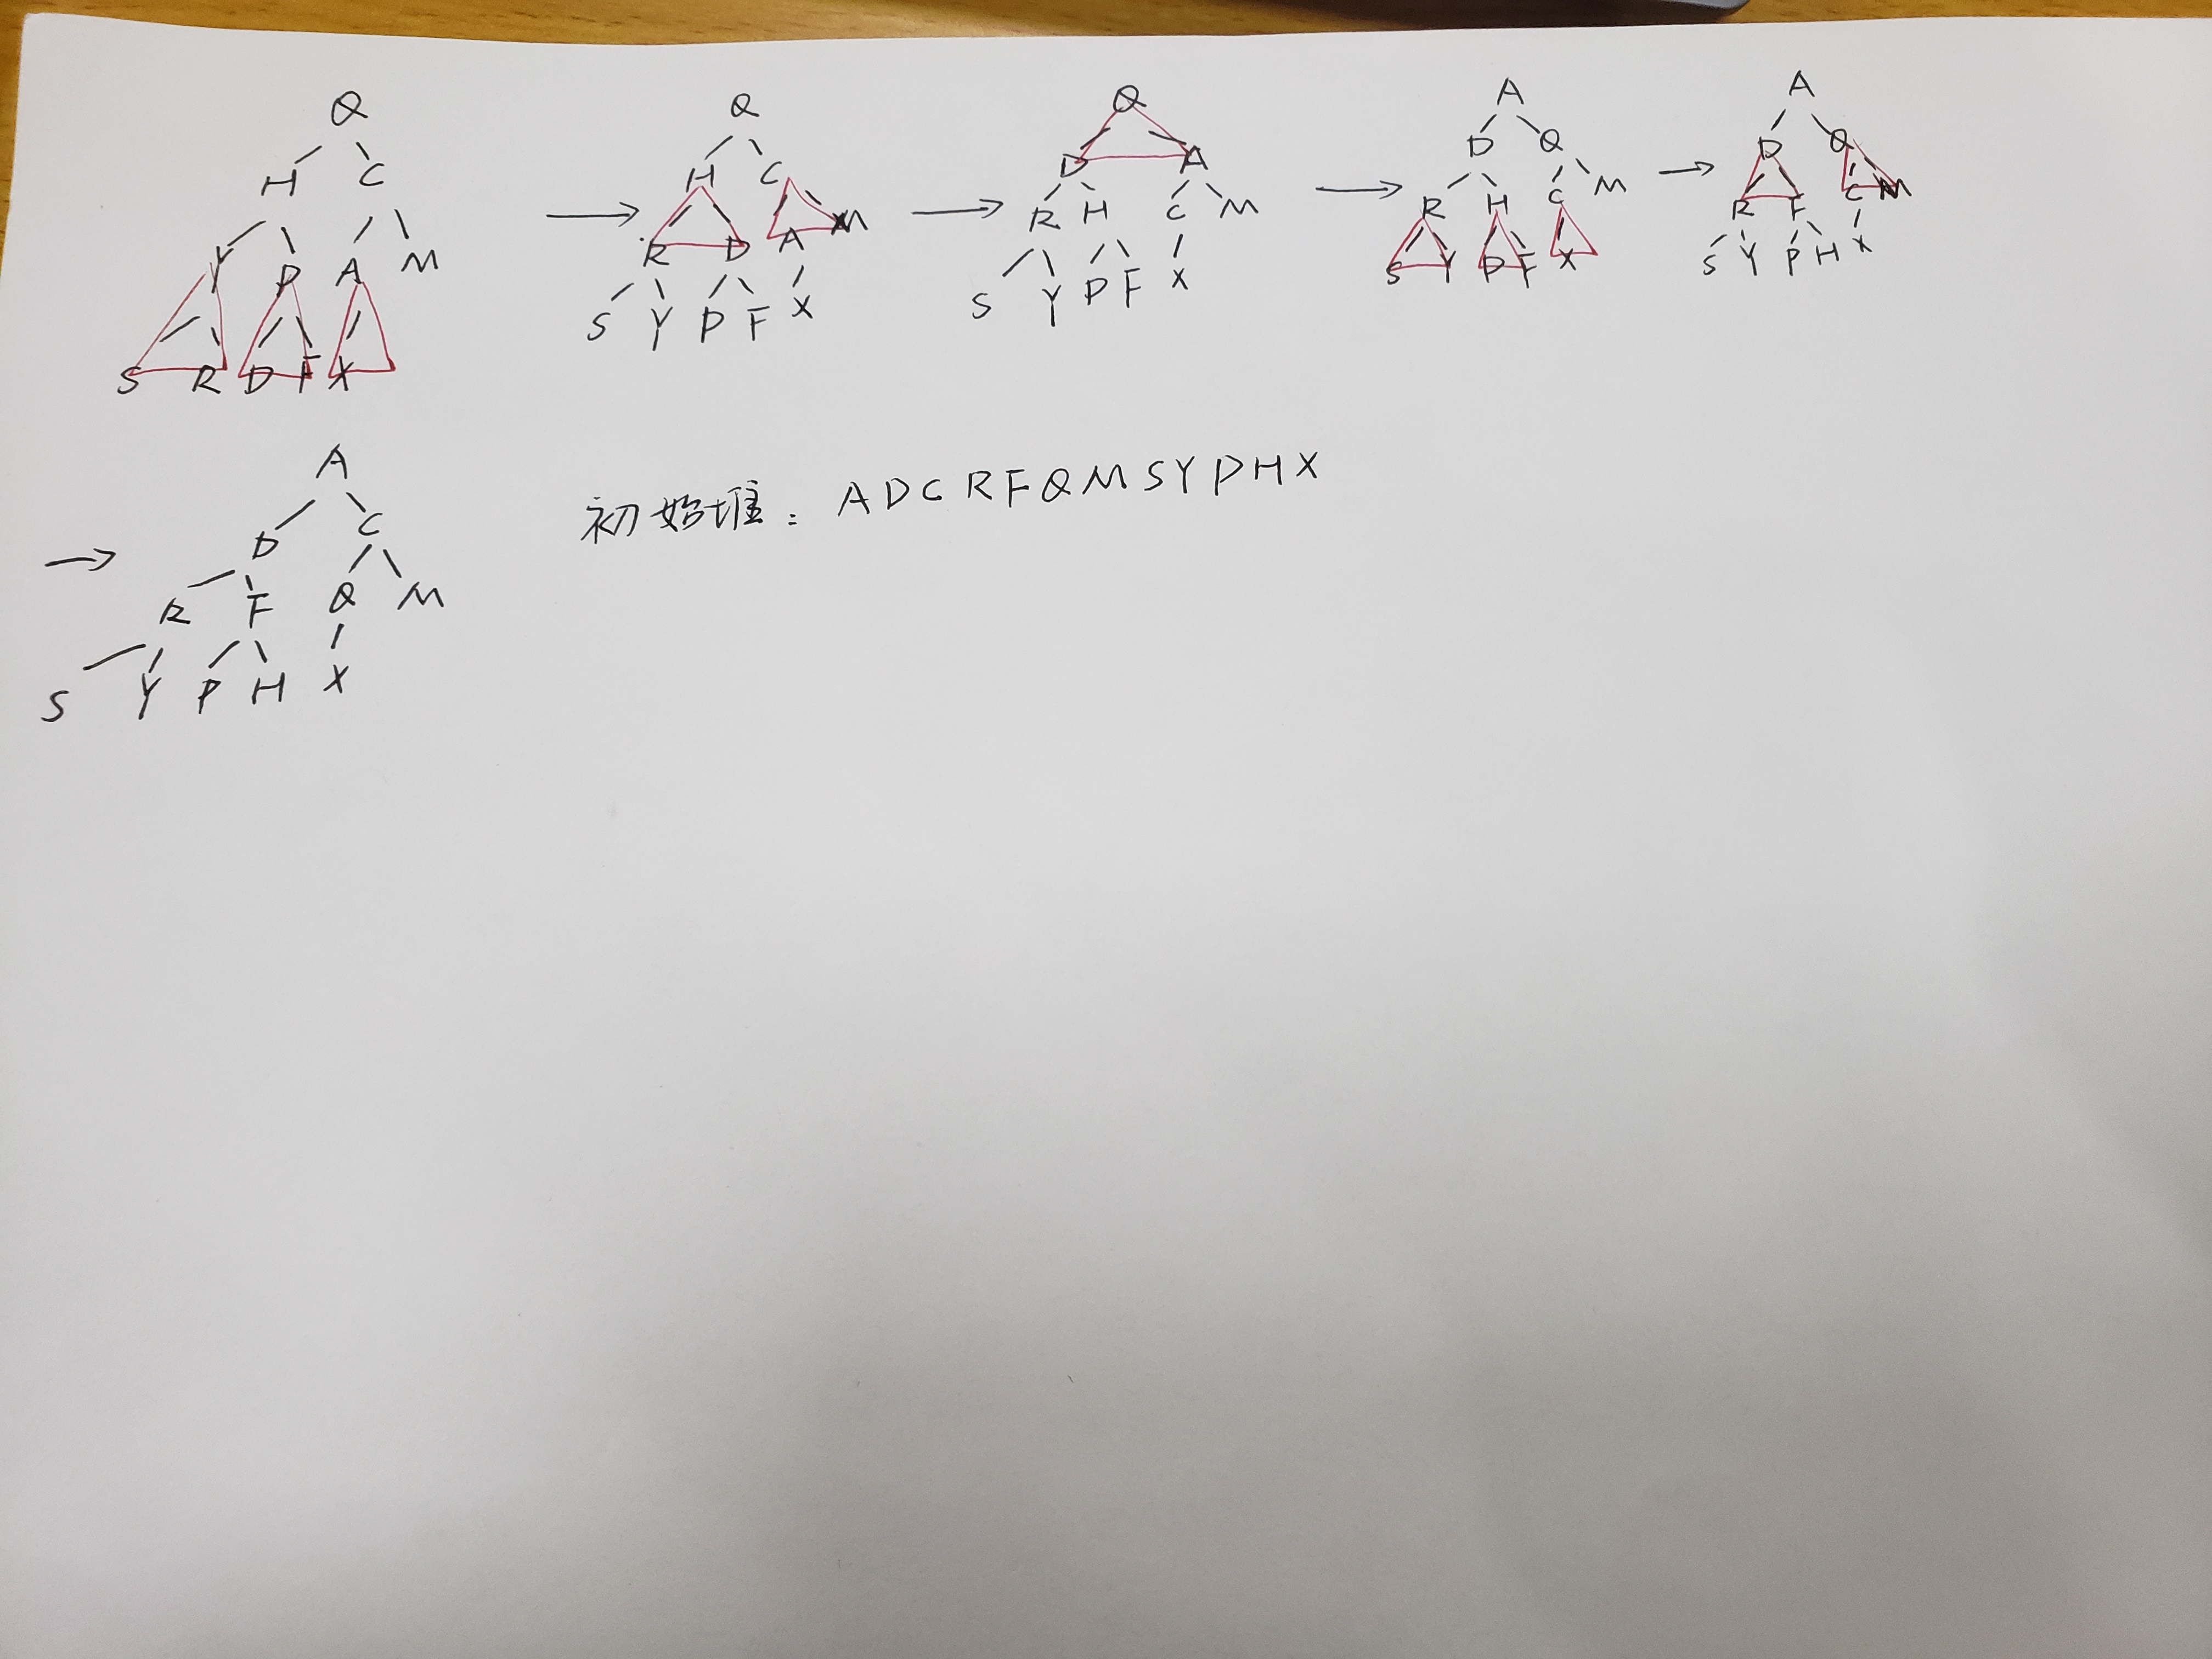 Q
H C
Y P A M
S R D F X
→
Q
H C
R D A M
S Y P F X
→
Q
D A
R H C M
S Y P F X
→
A
D Q
R H C M
S Y P F X
→
A
D Q
R F C M
S Y P H X
→
A
D C
R F Q M
S Y P H X
初始堆: A D C R F Q M S Y P H X